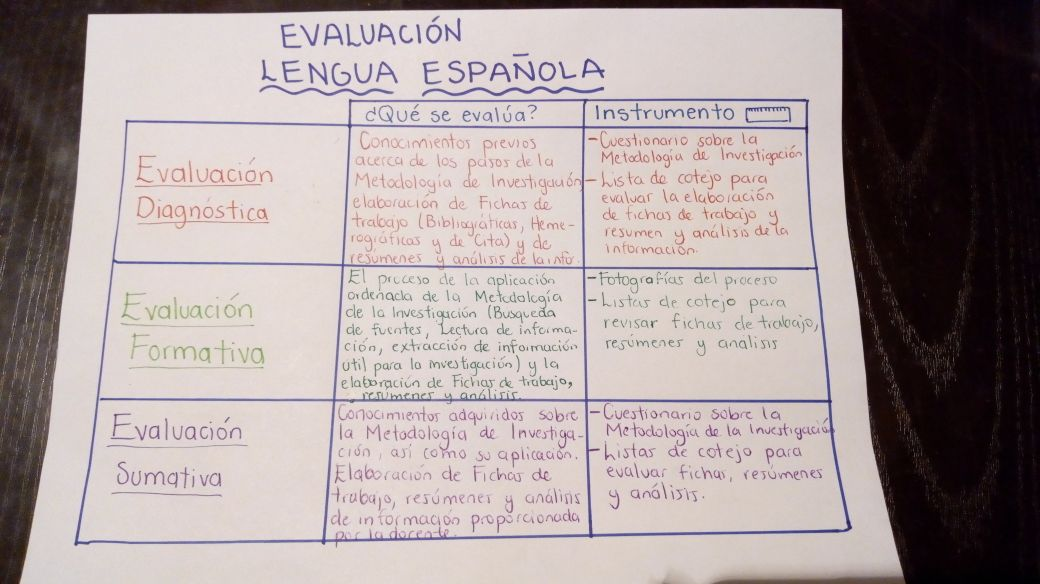 EVALUACIÓN
LENGUA ESPAÑOLA
¿Qué se evalúa?
Instrumento
Evaluación
Diagnóstica
Conocimientos previos
acerca de los pasos de la
Metodología de Investigación
elaboración de Fichas de
trabajo (Bibliográficas, Heme-
rográficas y de Cita) y de
resúmenes y análisis de la info.
- Cuestionario sobre la
Metodología de Investigación
- Lista de cotejo para
evaluar la elaboración
de fichas de trabajo y
resumen y análisis de la
información.
Evaluación
Formativa
El proceso de la aplicación
ordenada de la Metodología
de la Investigación (Busqueda
de fuentes, Lectura de informa-
ción, extracción de información
útil para la investigación) y la
elaboración de Fichas de trabajo,
resumenes y análisis.
- Fotografías del proceso
- Listas de cotejo para
revisar fichas de trabajo,
resúmenes y analisis
Evaluación
Sumativa
Conocimientos adquiridos sobre
la Metodología de Investiga-
ción, así como su aplicación.
Elaboración de Fichas de
trabajo, resúmenes y análisis
de información proporcionada
por la docente.
- Cuestionario sobre la
Metodología de la Investigación
- Listas de cotejo para
evaluar fichas, resúmenes
y análisis.